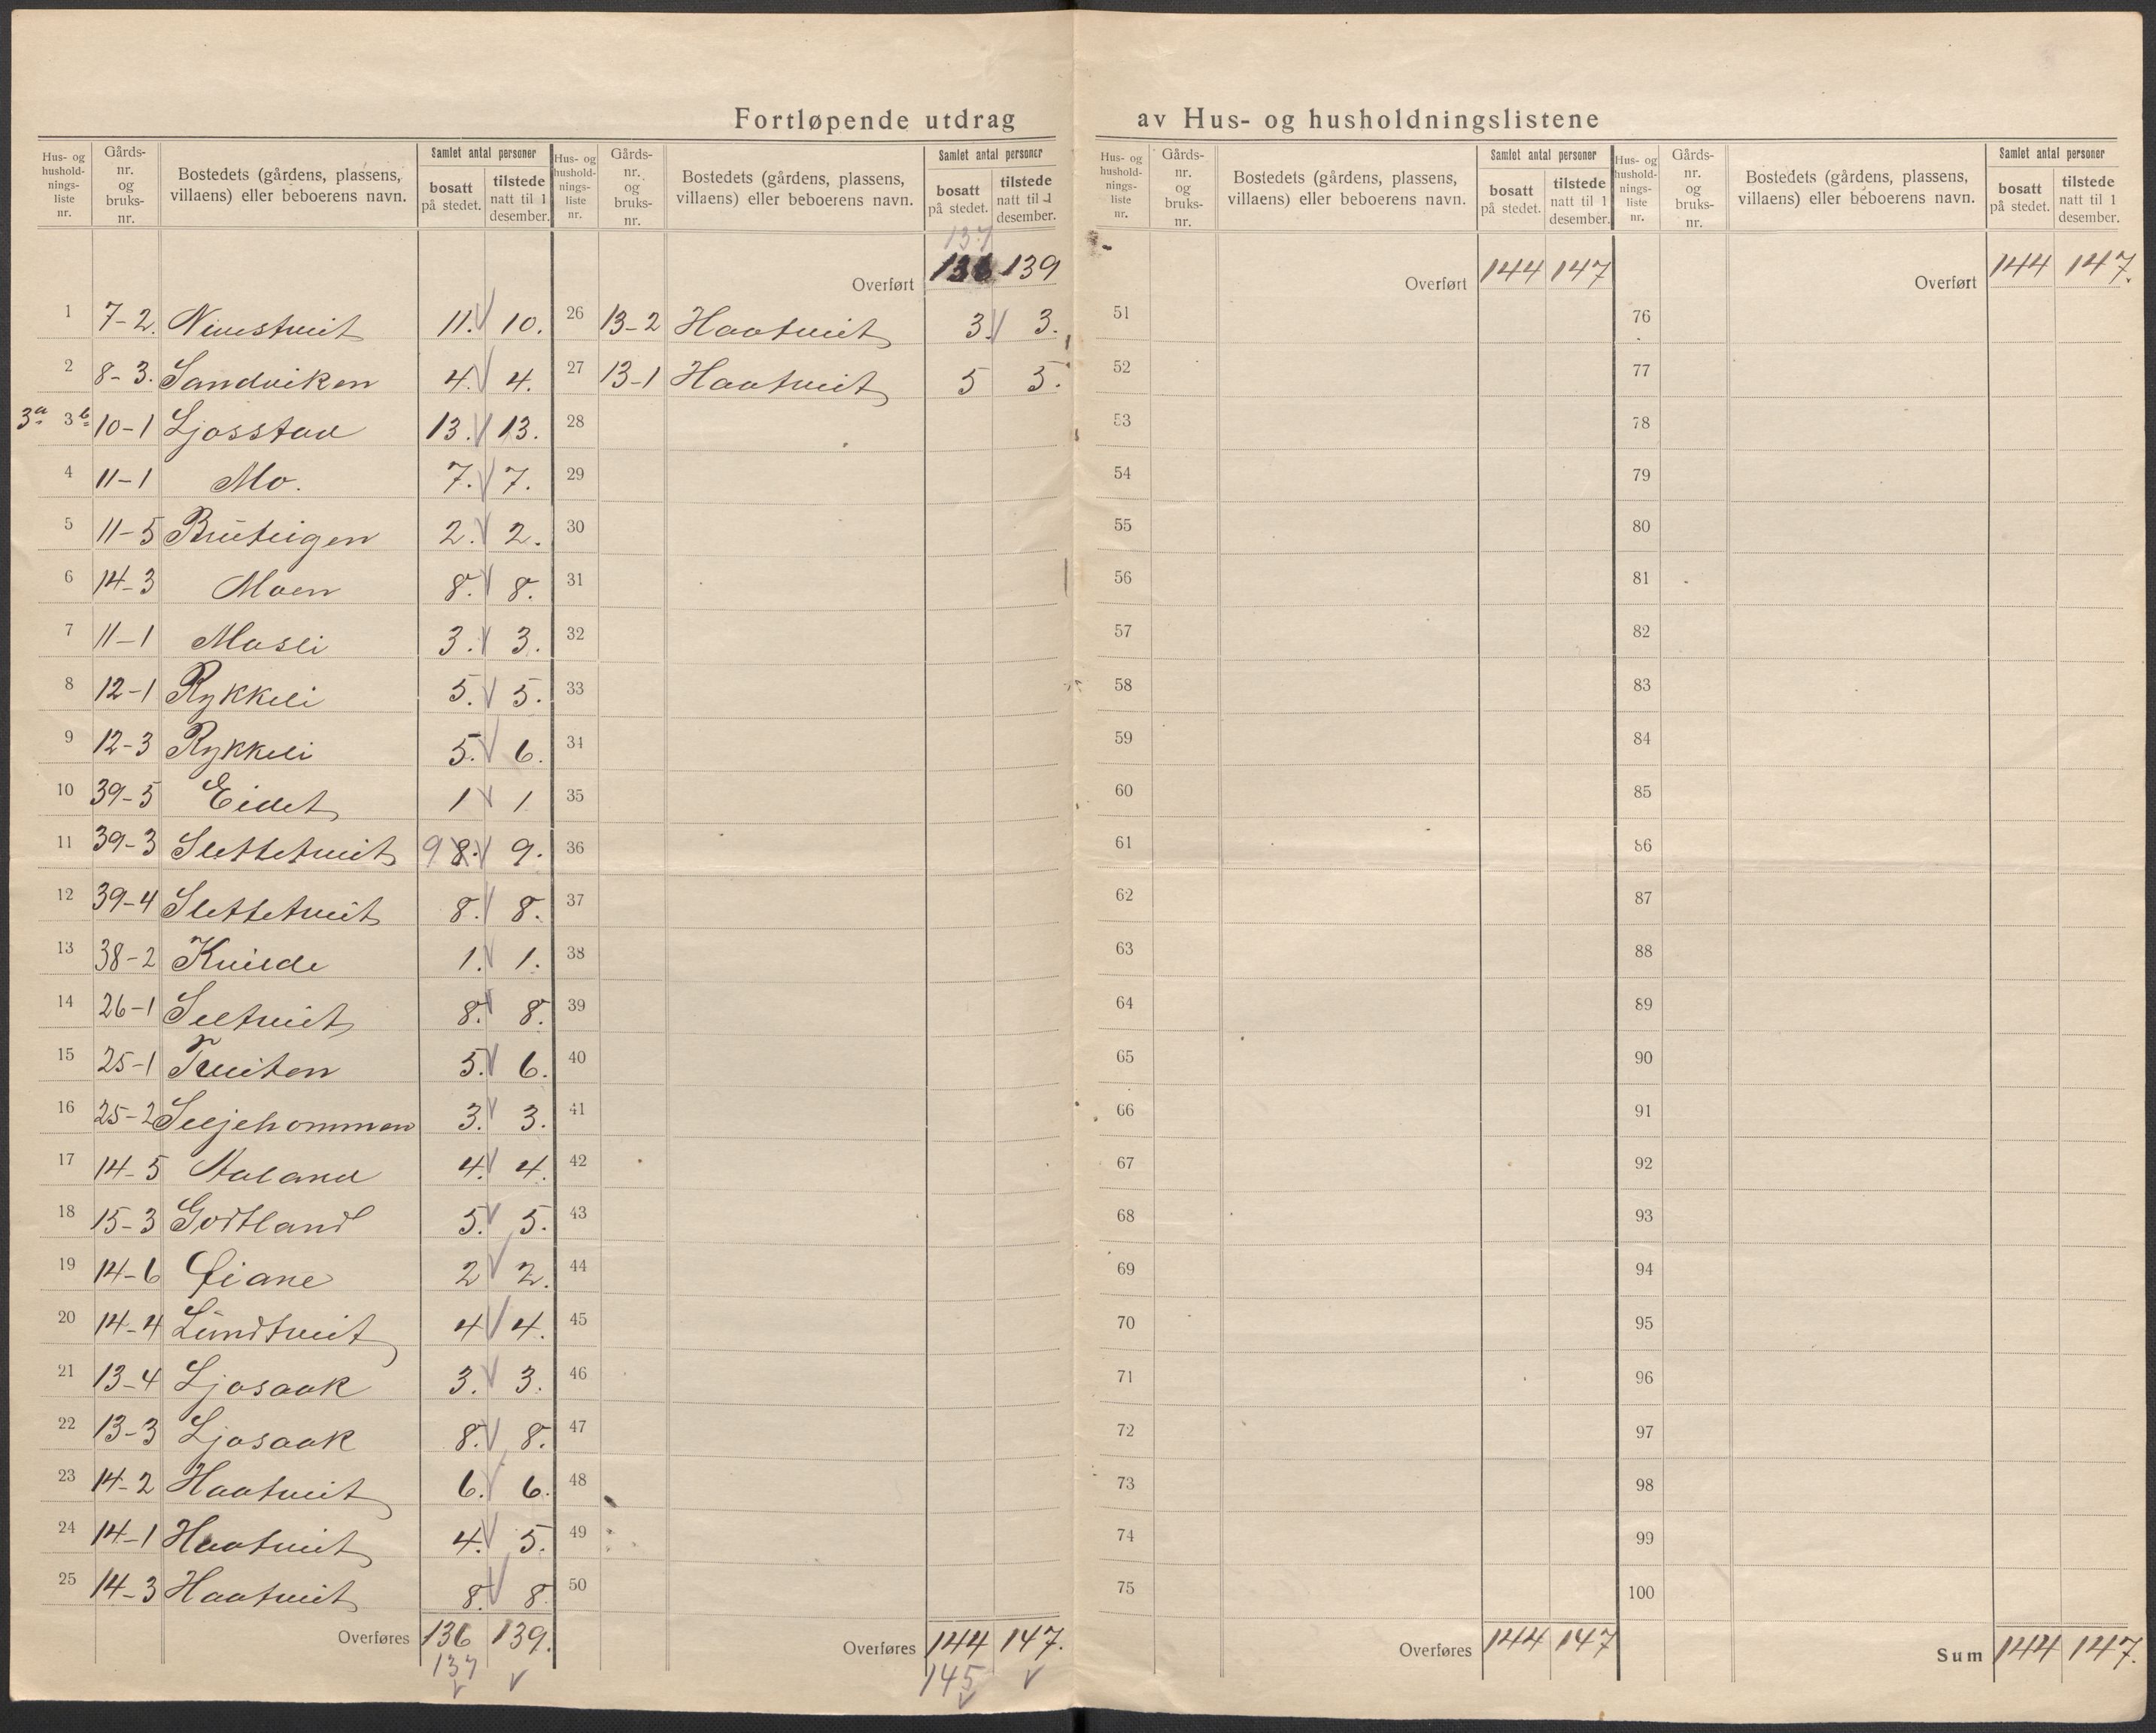 Fortløpende utdrag av Hus- og husholdningslistene
Hus- og hushold- nings- liste nr. | Gårds- nr. og bruks- nr. | Bostedets (gårdens, plassens, villaens) eller beboerens navn. | Samlet antal personer | bosatt på stedet. | tilstede natt til 1 desember.
1 7-2. Nuustveit 11. 10.
2 8-3. Sandviken 4. 4.
3a 3b 10-1 Ljosstad 13. 13.
4 11-1 Mo. 7. 7.
5 11-5 Bruteigen 2. 2.
6 14-3 Moen 8. 8.
7 11-1 Mosli 3. 3.
8 12-1 Rykkeli 5. 5.
9 12-3 Rykkeli 5. 6.
10 39-5 Eidet 1 1
11 39-3 Slettetveit 9 8. 9.
12 39-4 Slettetveit 8. 8.
13 38-2 Kvilde 1. 1.
14 26-1 Seltveit 8. 8.
15 25-1 Tveiten 5. 6.
16 25-2 Seljehommen 3. 3.
17 14-5 Aaland 4. 4.
18 15-3 Godtland 5. 5.
19 14-6 Liane 2 2.
20 14-4 Lundtveit 4 4.
21 13-4 Ljosaak 3. 3.
22 13-3 Ljosaak 8. 8.
23 14-2 Haatveit 6. 6.
24 14-1 Haatveit 4. 5.
25 14-3 Haatveit 8. 8
Overføres 136 139.
137
Hus- og hushold- nings- liste nr. | Gårds- nr. og bruks- nr. | Bostedets (gårdens, plassens, villaens) eller beboerens navn. | Samlet antal personer | bosatt på stedet. | tilstede natt til 1 desember.
137
Overført 136 139
26 13-2 Haatveit 3. 3.
27 13-1 Haatveit 5 5.
28
29
30
31
32
33
34
35
36
37
38
39
40
41
42
43
44
45
46
47
48
49
50
Overføres 144 147.
145
Hus- og hushold- nings- liste nr. | Gårds- nr. og bruks- nr. | Bostedets (gårdens, plassens, villaens) eller beboerens navn. | Samlet antal personer | bosatt på stedet. | tilstede natt til 1 desember.
Overført 144 147
51
52
53
54
55
56
57
58
59
60
61
62
63
64
65
66
67
68
69
70
71
72
73
74
75
Overføres 144 147
Hus- og hushold- nings- liste nr. | Gårds- nr. og bruks- nr. | Bostedets (gårdens, plassens, villaens) eller beboerens navn. | Samlet antal personer | bosatt på stedet. | tilstede natt til 1 desember.
Overført 144 147.
76
77
78
79
80
81
82
83
84
85
86
87
88
89
90
91
92
93
94
95
96
97
98
99
100
Sum 144 147.